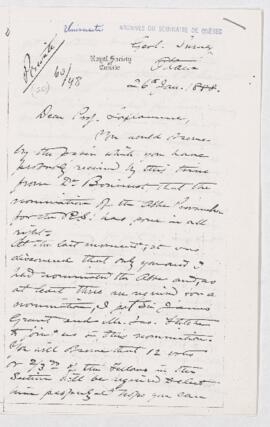 Université
ARCHIVES DU SÉMINAIRE DE QUÉBEC
Private
Geol. Survey
Royal Society
of Canada
Ottawa
60/48
26th Jan.
Dear Prof. Laflamme,
You would
by the which you have
probably received by this time
from Dr Bourinot, that the
nomination of the Abbe
for the R.S. has gone in all
right.
At the last moment, it was
discovered that only you and I
had nominated the Abbe and as
at least three are required for a
nomination, I got Sir James
Grant and Mr. Jas. Fletcher
to join us in this nomination.
You will observe that 12 votes
or 2/3rds of the Fellows in this
Section will be required to elect
hope you can